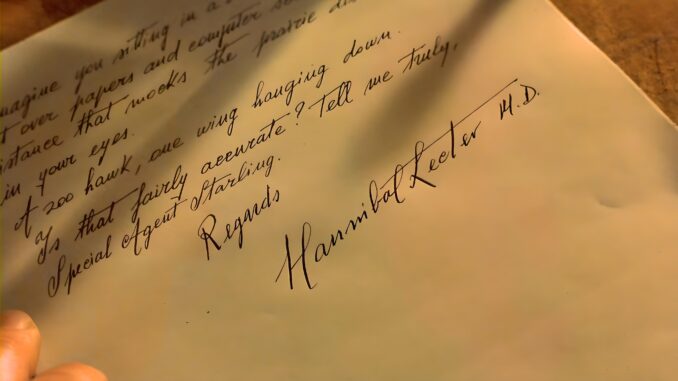 magine you sitting in a
t over papers and computer sc
istance that mocks the prairie dis
in your eyes.
A zoo hawk, one wing hanging down.
Is that fairly accurate? Tell me truly,
Special Agent Starling.
Regards
Hannibal Lecter M.D.